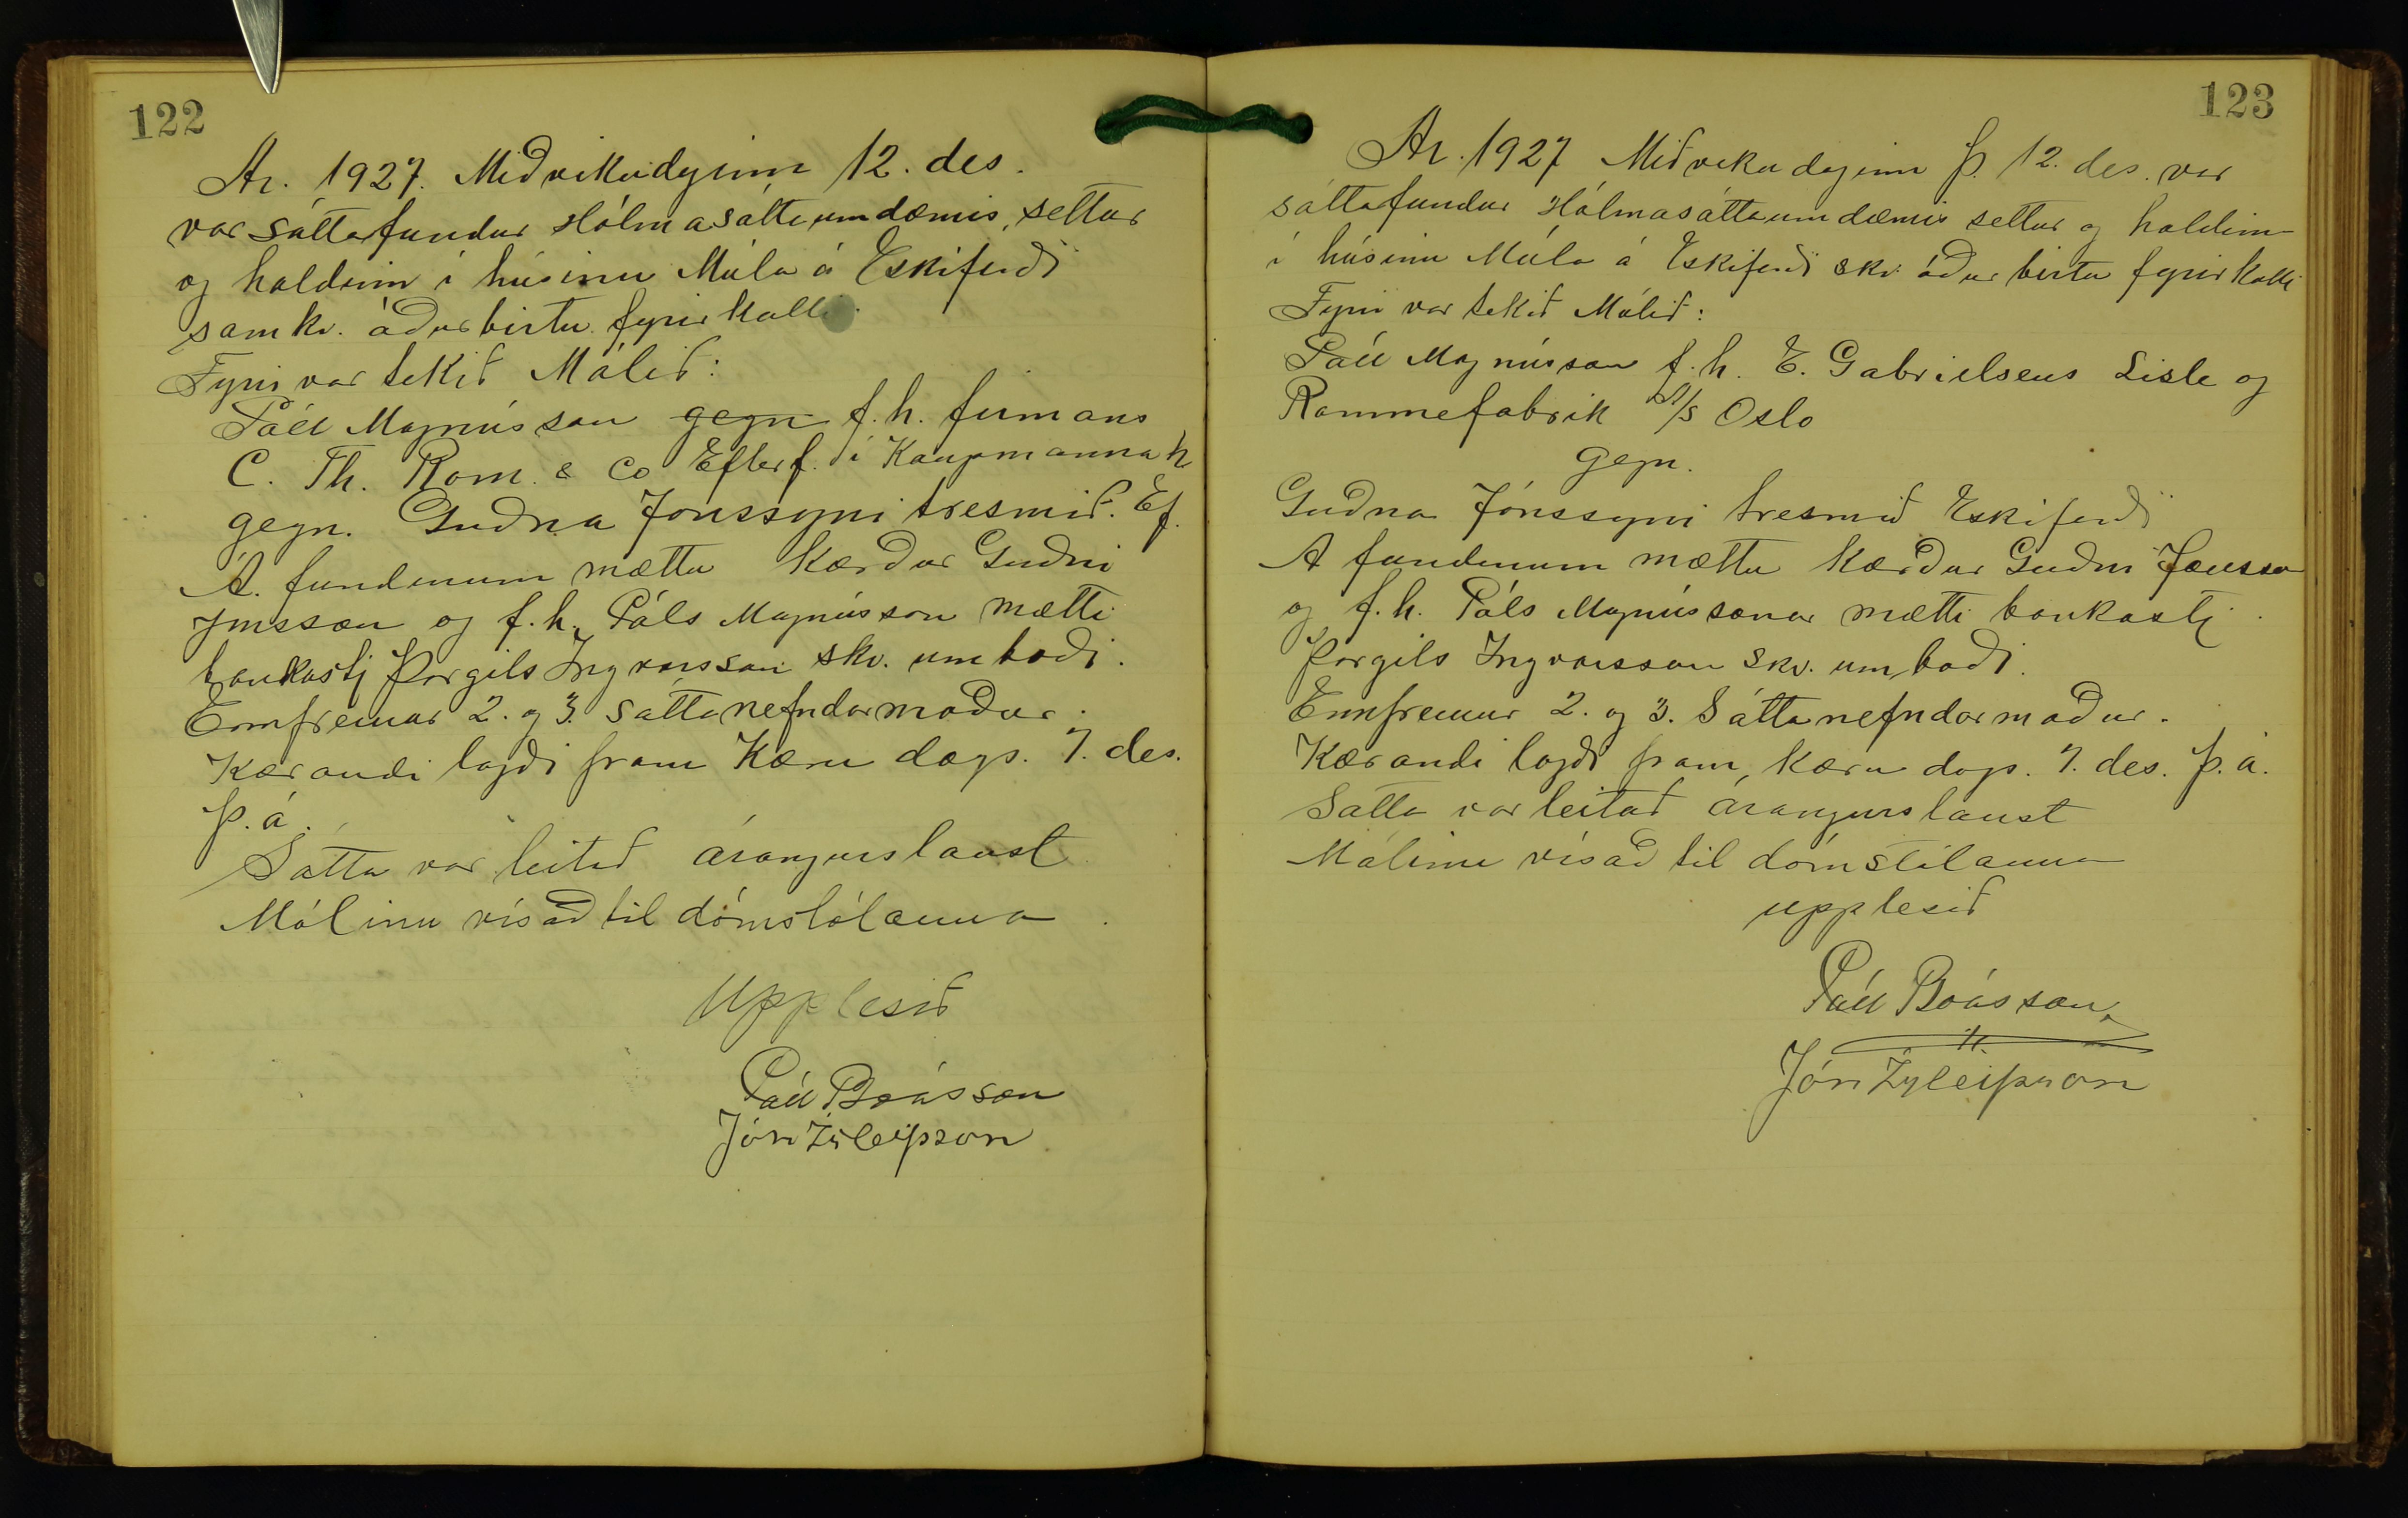 122
Ár. 1927. Miðvikudaginn 12. des.
var sáttafundur Hólmasáttaumdæmis, settur
og haldinn í húsinu Múla á Eskifirði
samkv. áður birtu fyrirkalli.
Fyrir var tekið Málið:
Páll Magnússon gegn f.h. firmans
C. Th. Rom. & Co Efterf. í Kaupmannah
gegn. Guðna Jónssyni trésmið. Ef.
Á. fundinum mættu kærður Guðni
Jónsson og f.h. Páls Magnússon mætti
bankastj Þorgils Ingvarsson skv. umboði.
Ennfremur 2. og 3. sáttanefndarmaður.
Kærandi lagði fram kæru dags. 7. des.
þ. á.
Sátta var leitað árangurslaust
Málinu vísað til dómstólanna
Upplesið
Páll Bóasson
Jón Ísleifsson
123
Ár. 1927 Miðvikudaginn þ. 12. des. var
sáttafundur Hólmasáttaumdæmis settur og haldinn
í húsinu Múla á Eskifirði skv. áður birtu fyrirkalli
Fyrir var tekið Málið:
Páll Magnússon f.h. E. Gabrielsens Liste og
Rammefabrik A/S Oslo
gegn.
Guðna Jónssyni trésmið Eskifirði
Á fundinum mættu kærður Guðni Jónsson
og f.h. Páls Magnússonar mætti bankastj.
Þorgils Ingvarsson skv. umboði.
Ennfremur 2. og 3. Sáttanefndarmaður.
Kærandi lagði fram, kæru dags. 7. des. þ.á.
Sátta var leitað árangurslaust
Málinu vísað til dómstólanna
upplesið
Páll Bóasson
Jón Ísleifsson